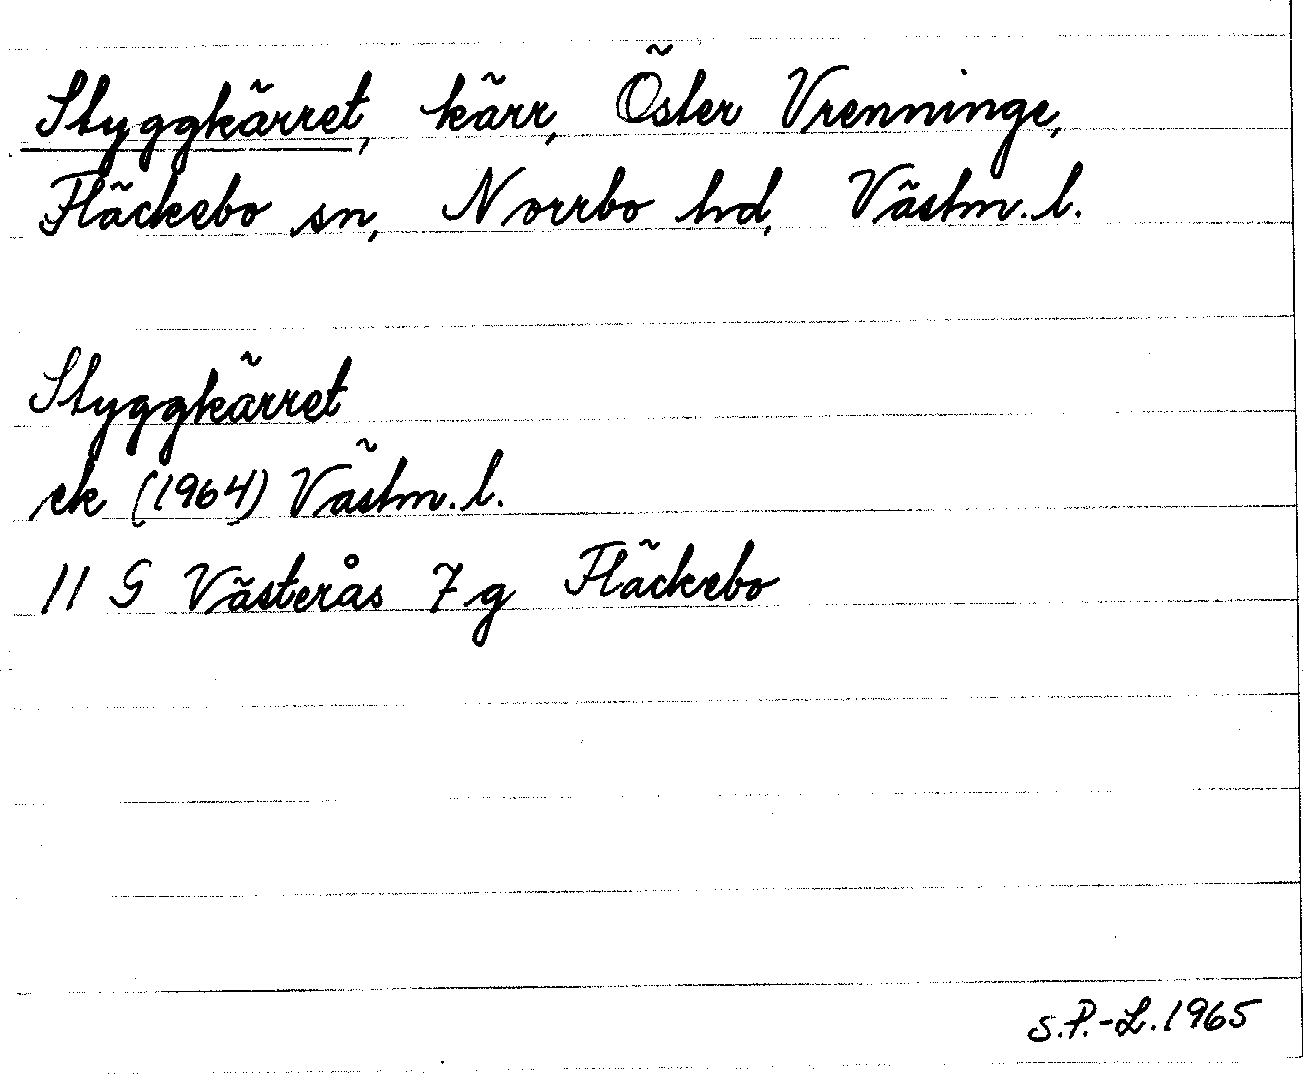 Styggkärret, kärr, Öster Vrenninge,
Fläckebo sn, Norrbo hd, Västm. l.
Styggkärret
ek (1964) Västm. l.
11 G Västerås 7 g Fläckebo
S.P.-L. 1965